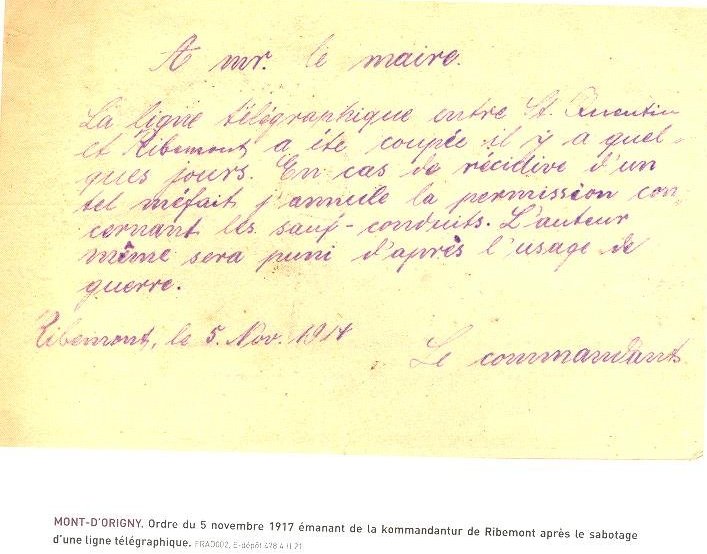 A mr. le maire.
La ligne télégraphique entre St. Quentin
et Ribemont a été coupée il y a quel-
ques jours. En cas de récidive d'un
tel méfait j'annule la permission con-
cernant les sauf-conduits. L'auteur
même sera puni d'après l'usage de
guerre.
Ribemont, le 5. Nov. 1914
Le commandant
MONT-D'ORIGNY. Ordre du 5 novembre 1917 émanant de la kommandantur de Ribemont après le sabotage
d'une ligne télégraphique. FRAD002, E-dépôt 478 4 H 21